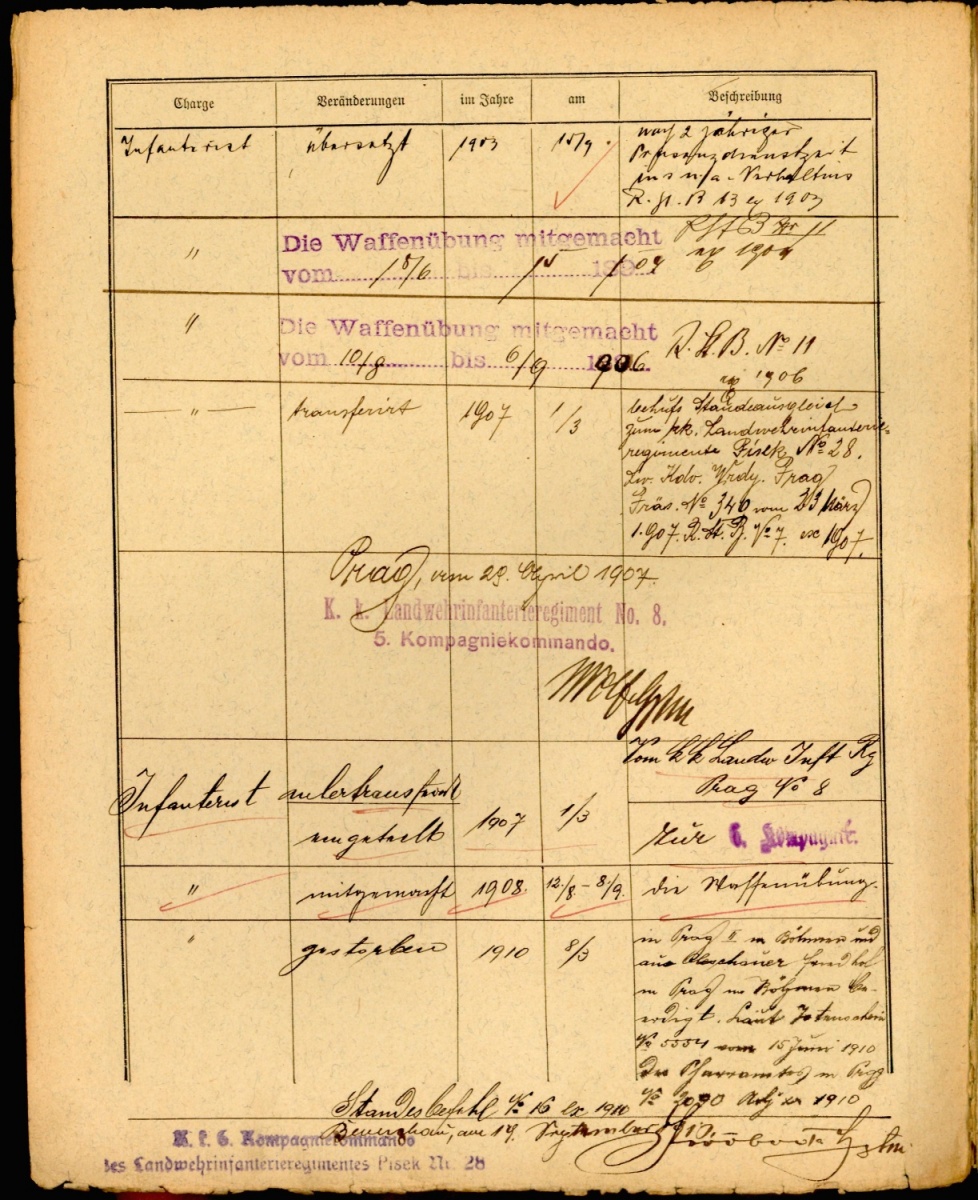 Charge Veränderungen im Jahre am Beschreibung
Infanterist übersetzt 1903 15/9. nach 2 jähriger
Präsenzdienstzeit
ins n/a-Verhältnis
R. St. B 13 ex 1903
" Die Waffenübung mitgemacht
vom 18/6 bis 15 189
R St B Nr 11
ex 1904
" Die Waffenübung mitgemacht
vom 10/8 bis 6/9 906
R. St. B. No 11
ex 1906
" transferirt 1907 1/3 behufs Standeausgleich
zum kk. Landwehrinfanterie-
regimente Pisek No 28.
Prag
Präs. No 340 vom 23 März
1907. R. St. B. No 7. ex 1907.
Prag, am 29. April 1907.
K. k. Landwehrinfanterieregiment No. 8.
5. Kompagniekommando.
Vom k k Landw Inft Rg
Prag No 8
Infanterist anhertransferirt
eingeteilt 1907 1/3 zur 6. Kompagnie.
" mitgemacht 1908. 12./8 - 8/9. die Waffenübung.
" gestorben 1910 8/3 in Prag II in Böhmen und
am Olschauer Friedhof
in Prag in Böhmen be-
erdigt. Laut Totenschein
No 5554 vom 15 Juni 1910
des Pfarramtes in Prag
No 3090 ex 1910
Standesbefehl No 16 ex 1910
am 14. September 910.
K. k. 6. Kompagniekommando
des Landwehrinfanterieregimentes Pisek Nr. 28